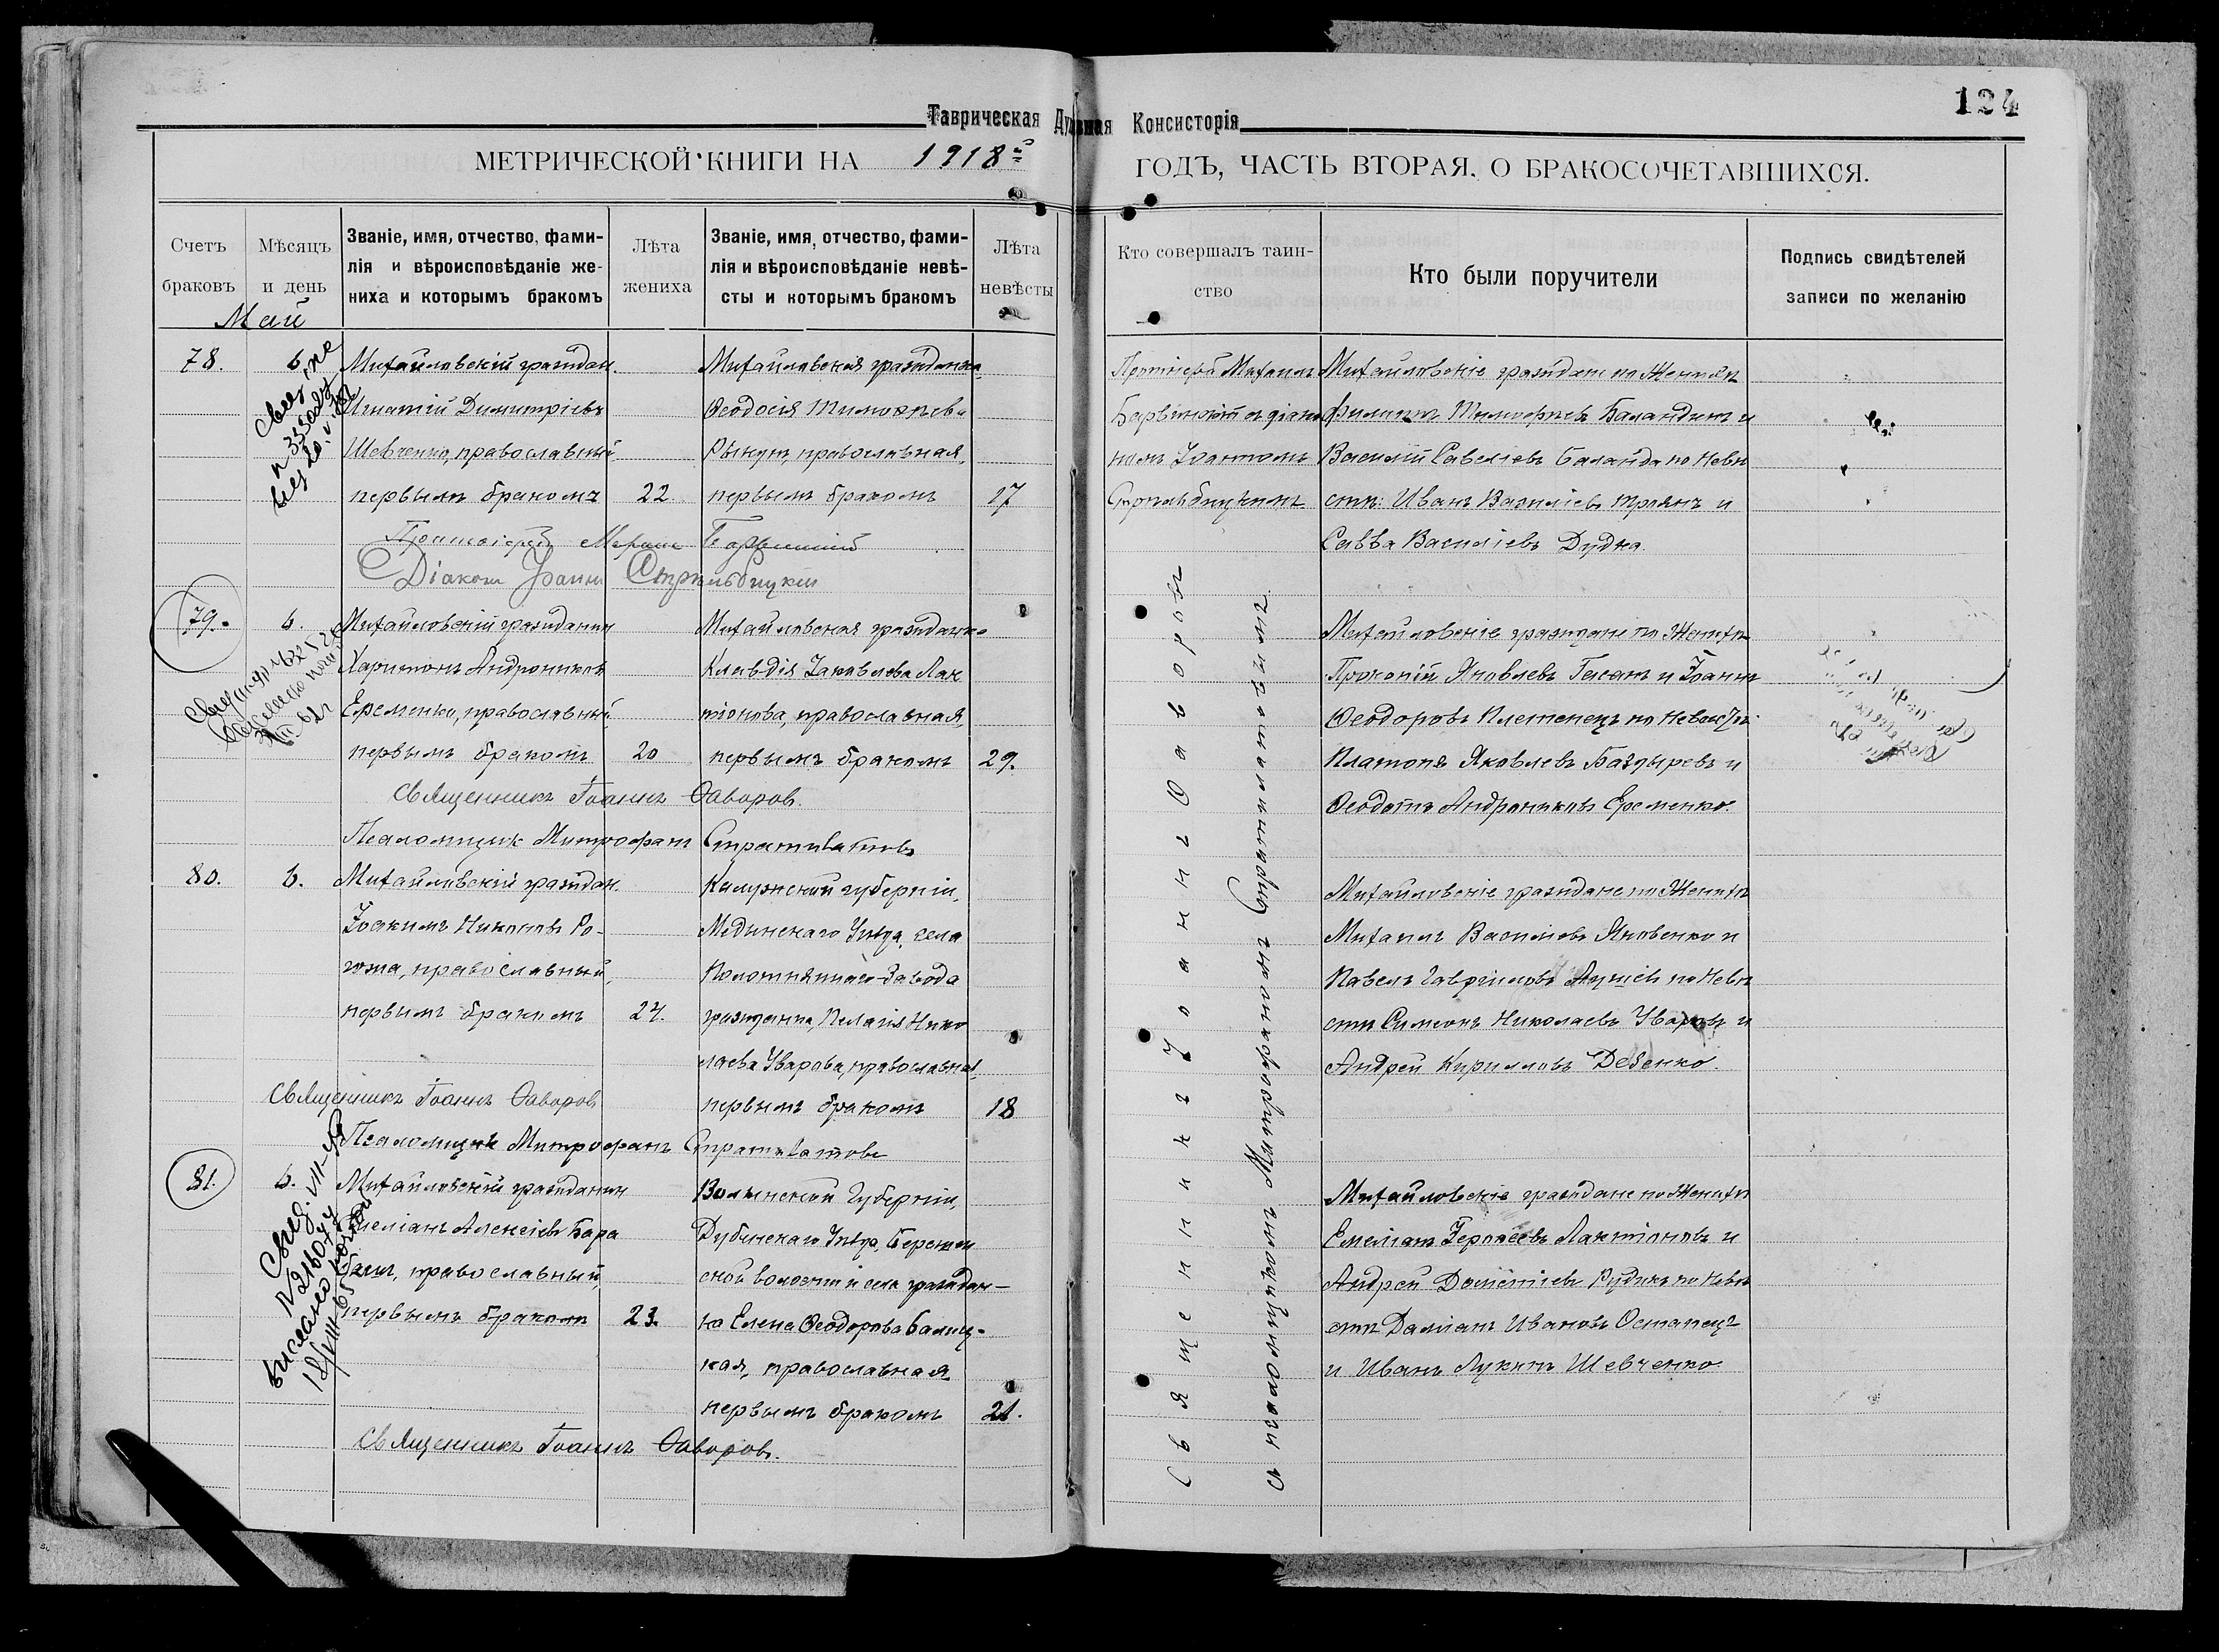 124
Таврическая Духовная Консисторія
МЕТРИЧЕСКОЙ КНИГИ НА 1918й ГОДЪ, ЧАСТЬ ВТОРАЯ, О БРАКОСОЧЕТАВШИХСЯ.
Счетъ браковъ
Мѣсяцъ и день
Званіе, имя, отчество, фами-
лія и вѣроисповѣданіе же-
ниха и которымъ бракомъ
Лѣта жениха
Званіе, имя, отчество, фами-
лія и вѣроисповѣданіе невѣ-
сты и которымъ бракомъ
Лѣта невѣсты
Кто совершалъ таин-
ство
Кто были поручители
Подпись свидѣтелей
записи по желанію
Май
78.
6
Михайловскій граждан.
Игнатій Димитріевъ
Шевченко, православный
первымъ бракомъ
22
Михайловская гражданка
Ѳеодосія Тимоѳеева
православная,
первымъ бракомъ
17
Протоіерей Михаилъ
съ діако
номъ Іоанномъ
Стрельбицкимъ
Михайловскіе граждане по Женихѣ
Филиппъ Тимофеевъ Баландинъ и
Василій Савеліевъ Баланда по Невѣ
стѣ: Иванъ Василіевъ Троянъ и
Савва Василіевъ Дудка.
Протоіерей
Діаконъ Іоаннъ Стрельбицкій
79.
6.
Михайловскій гражданин
Харитонъ Андрониковъ
Еременко, православный
первымъ бракомъ
20
Михайловская гражданка
Клавдія Іаковлева Лак
тіонова, православная,
первымъ бракомъ
29.
Михайловскіе граждане по Женихѣ
Прокопій Яковлевъ Гасанъ и Іоаннъ
Ѳеодоровъ Племенецъ по Невѣстѣ
Платонъ Яковлевъ Баздыревъ и
Ѳеодотъ Андрониковъ Еременко.
Священникъ Іоаннъ Ѳаворов.
Псаломщик Митрофанъ Стратилатовъ
80.
6.
Михайловскій граждан.
Іоакимъ Никоновъ Ро-
гожа, православный,
первымъ бракомъ
24.
Калужской губерніи,
Медынскаго Уѣзда, села
Полотнянаго-Завода
гражданка, Пелагія Нико
лаева Уварова, православная,
первымъ бракомъ
18
Михайловскіе граждане по Женихѣ
Михаилъ Василіевъ Яковенко и
Павелъ Гавріиловъ по Невѣ
стѣ Симеонъ Николаевъ Уваровъ и
Андрей Кирилловъ Деденко.
Священникъ Іоаннъ Ѳаворов
Псаломщикъ Митрофанъ Стратилатовъ
81.
6.
Михайловскій гражданин
Емеліанъ Алексіевъ Бара
православный,
первымъ бракомъ
23.
Волынской Губерніи,
Дубенскаго Уѣзда,
ской волости и села граждан-
ка Елена Ѳеодорова Балиц-
кая, православная
первымъ бракомъ
21.
Михайловскіе граждане по Женихѣ
Емеліанъ Лактіоновъ и
Андрей Дометіевъ Рудикъ по Невѣ
стѣ Даміанъ Ивановъ Остапецъ
и Иванъ Лукинъ Шевченко
Священникъ Іоаннъ Ѳаворов.
Священникъ Іоаннъ Ѳаворовъ
съ псаломщикомъ Митрофаномъ Стратилатовымъ